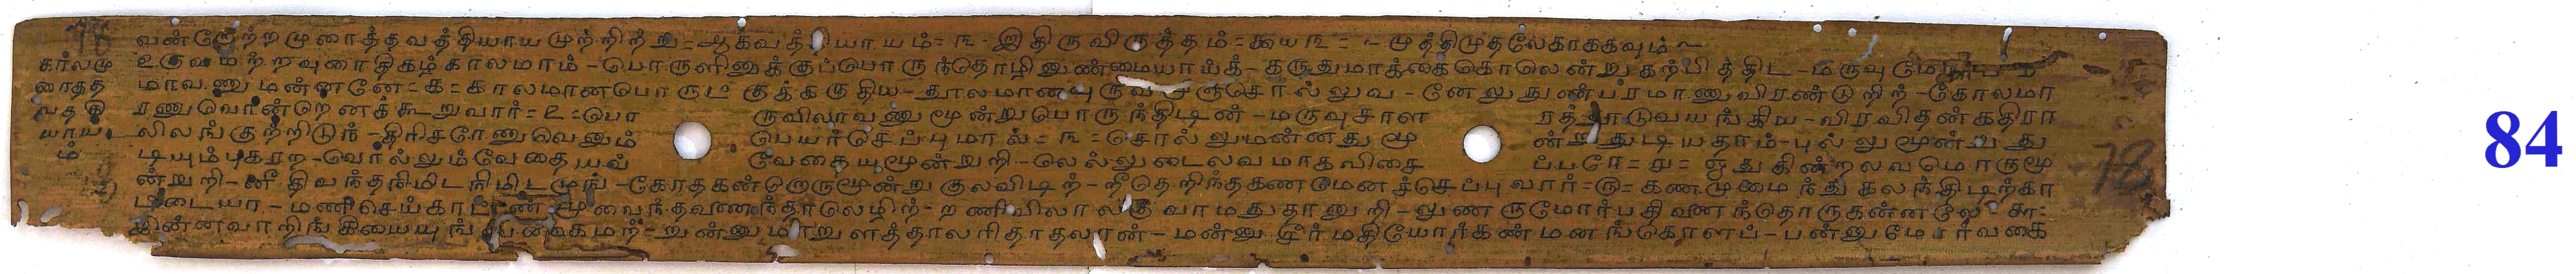 78
வன்றேற்றமுரைத்தவத்தியாயமுற்றிற்று = ஆகவத்தியாயம் = ௩ - இதிருவிருத்தம் = ௯௰௩ = ~ முத்திமுதலேகாககவும் ~
கர்லமு உருவமற்றவுரைதிகழ்காலமாம் - பொருளினுக்குப்பொருந்தொழிலுண்மையாய்க் - கருதுமாக்கைகொலென்றுகற்பித்திட - மருவு
ரைத்த மாவணுமன்னனே = ௧ = காலமானபொருட்குக்கருதிய - தூலமான - னேலுநுண்பரமாணுவிரண்டுறிற் - கோலமா
வத்தி ரணுவொன்றெனக்கூறுவார் = ௨ = பொ ருவிலாவணுமூன்றுபொருந்திடின் - மருவுசாள ரத்
யாய லிலங்குற்றிடுந் - திரிசரேணுவெனும் பெயர்செப்புமால் = ௩ = சொல்லுமண்னது மூ ன்றுதுடியதாம் - புல்லுமூன்று து
ம் டியும்புகரற - வொல்லும்வேதையவ் வேதையுமூன்றுறி - லெல்லுடைலவமாகவிசை ப்பரே = ௪ = ஐதுகின்றலவமொருமூ
ன்றுறி - னீதிவந்தநிமிடநிமிடமுங் - கோதகன்றொருமூன்றுகுலவிடிற் - றீதெறிந்தகணமெனச்செப்புவார் = ௫ = கணமுமைந்துகலந்திடிற்கா
டடையா - மணிசெய்காட்டை மூவைந்தவணைந்தாலெழிற் - றணிவிலாலகுவாமதுதானுறி - லுணருமோர்பதினைந்தொருகன்னலே - ௬ -
இன்னவாறிங்கியையுங் - றுன்னுமாறுளத்தாலரிதாதலான் - மண்னுசீர்மதியோர்கண்மனங்கொளப் - பன்னுமோர்வகை
78
84